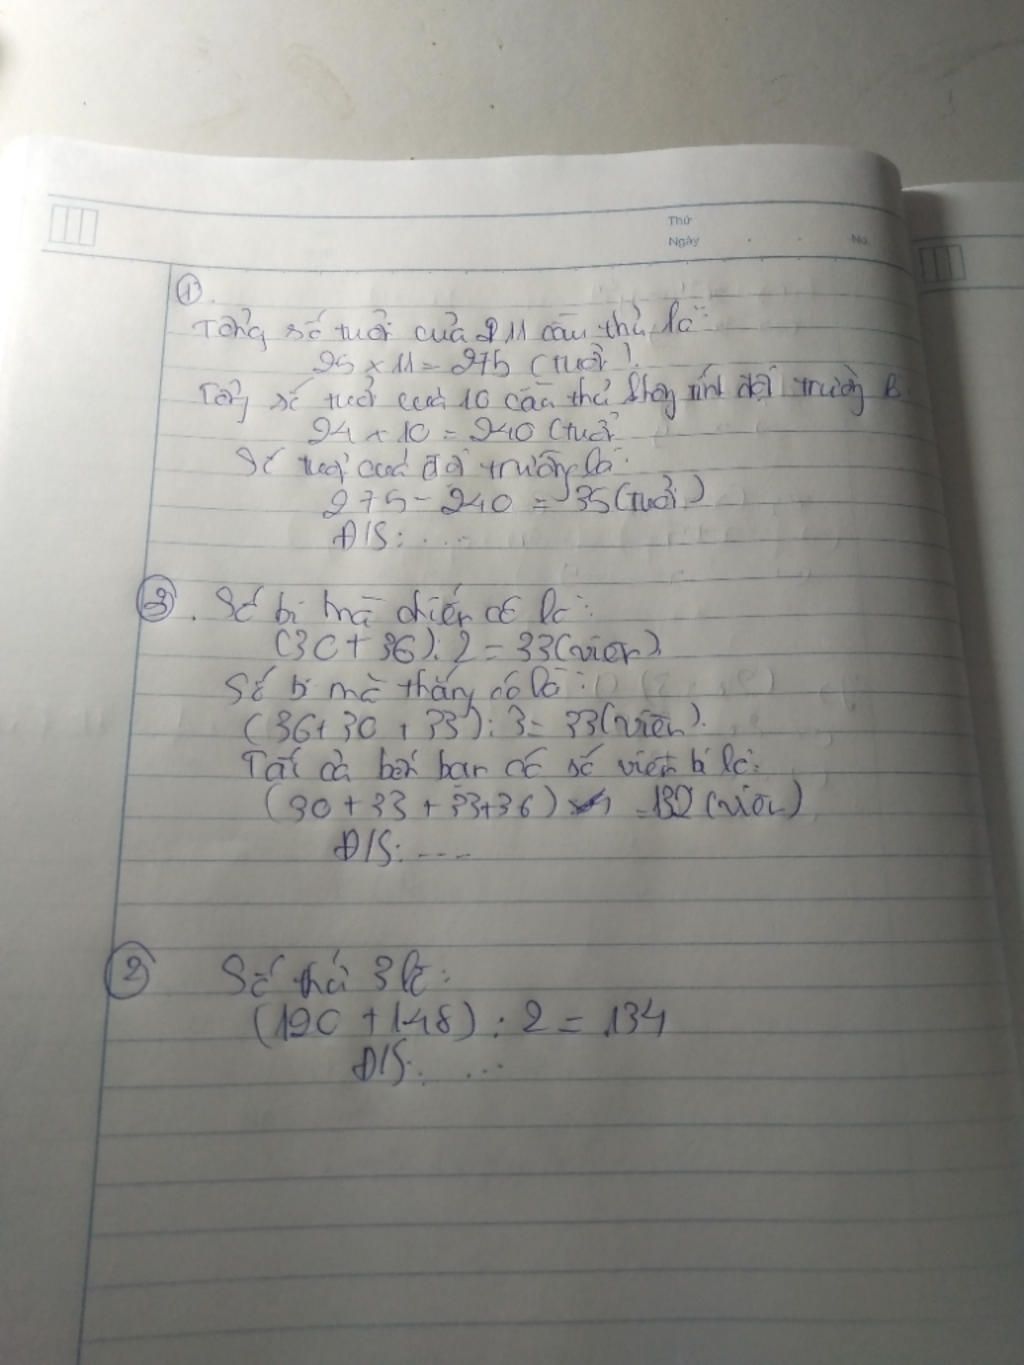 Thứ
Ngày No.
①.
Tổng số tuổi của 11 cầu thủ là:
25 x 11 = 275 (tuổi).
Tổng số tuổi của 10 cầu thủ không tính đội trưởng là
24 x 10 = 240 (tuổi
Số tuổi của đội trưởng là:
275 - 240 = 35 (tuổi)
Đ/S: ...
③. Số bi mà chiến có là:
(30 + 36) : 2 = 33 (viên).
Số bi mà thắng có là:
(36 + 30 + 33) : 3 = 33 (viên).
Tất cả bốn bạn có số viên bi là:
(30 + 33 + 33 + 36) = 132 (viên)
Đ/S: ....
② Số thứ 3 là:
(120 + 148) : 2 = 134
Đ/S: ...